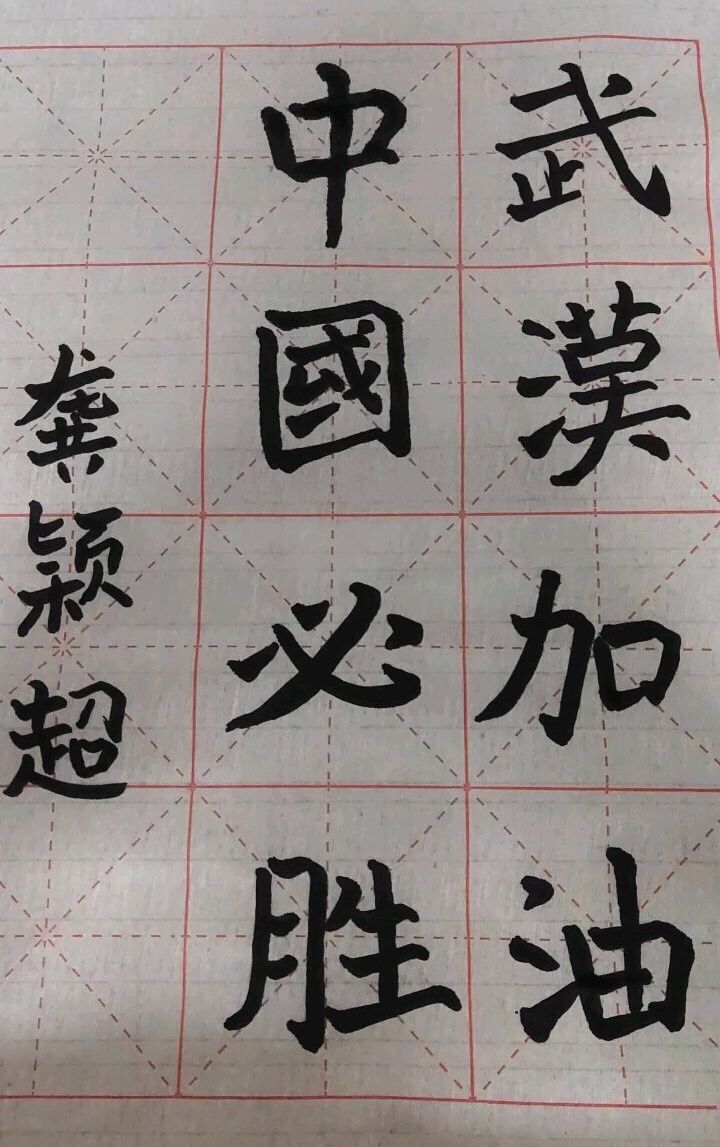 武漢加油
中國必胜
龚颖超